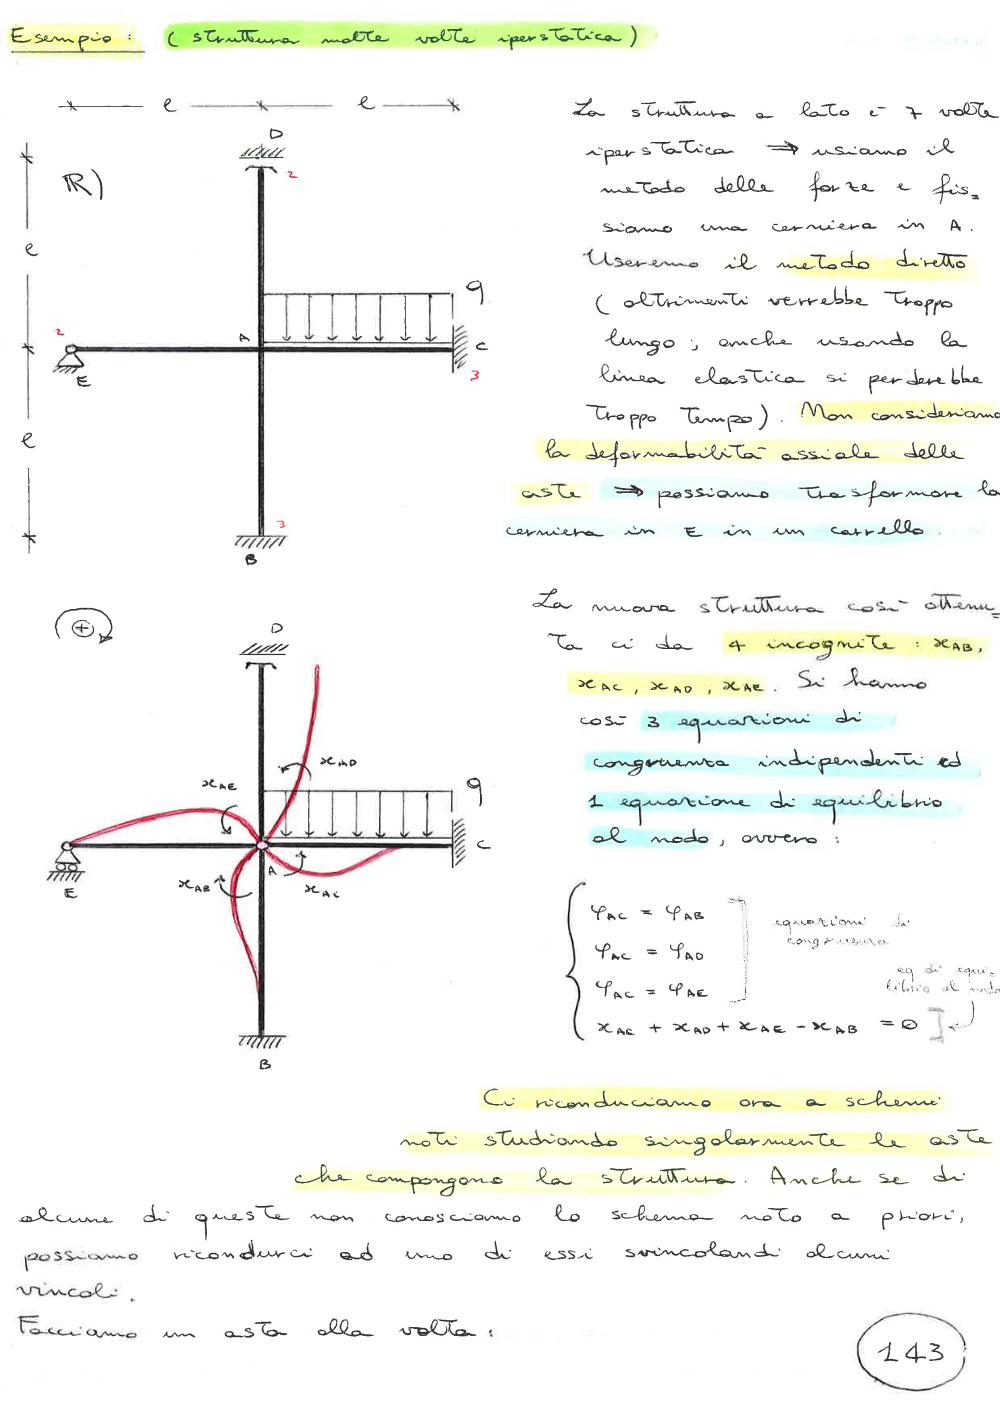 Esempio : ( struttura molte volte iperstatica )
l l
D
2
R)
l
q
2
A
C
E
3
l
3
B
La struttura a lato è 7 volte
iperstatica ⇒ usiamo il
metodo delle forze e fis=
siamo una cerniera in A.
Useremo il metodo diretto
( altrimenti verrebbe troppo
lungo ; anche usando la
linea elastica si perderebbe
troppo tempo ) . Non consideriamo
la deformabilità assiale delle
aste ⇒ possiamo trasformare la
cerniera in E in un carrello .
+
D
xAD
xAE
q
C
E
A
xAB
xAC
B
La nuova struttura così ottenu=
ta ci da 4 incognite : xAB,
xAC , xAD , xAE . Si hanno
così 3 equazioni di
congruenza indipendenti ed
1 equazione di equilibrio
al nodo , ovvero :
φAC = φAB
φAC = φAD
φAC = φAE
equazioni di
congruenza
eq di equi=
librio al nodo
xAC + xAD + xAE - xAB = 0
Ci riconduciamo ora a schemi
noti studiando singolarmente le aste
che compongono la struttura. Anche se di
alcune di queste non conosciamo lo schema noto a priori,
possiamo ricondurci ad uno di essi svincolandi alcuni
vincoli .
Facciamo un asta alla volta :
143